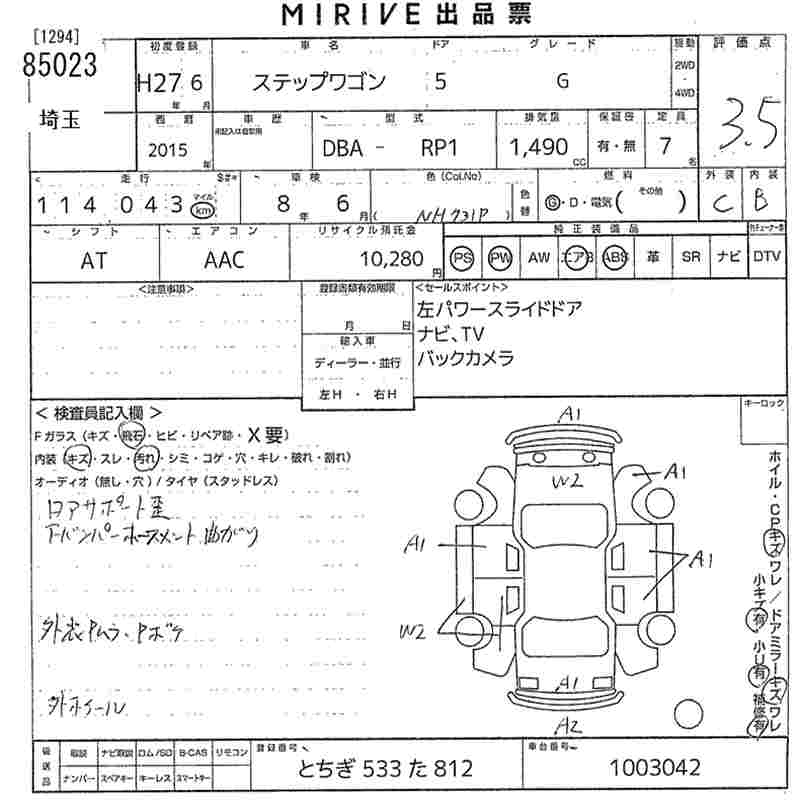 MIRIVE 出品票
[1294]
85023
埼玉
初度登録 車名 ドア グレード 駆動 評価点
H27 6 ステップワゴン 5 G 2WD - 4WD 3.5
年 月
西暦 車歴 型式 排気量 保証書 定員
2015 年 DBA - RP1 1,490 cc 有・無 7 名
走行 車検 色(Col.No) 色替 燃料 外装 内装
114 043 マイル km 8 年 6 月 ( NH731P ) G・D・電気( その他 ) C B
シフト エアコン リサイクル預託金 純正装備品
AT AAC 10,280 円 PS PW AW エアB ABS 革 SR ナビ DTV
<注意事項> 登録書類有効期限 <セールスポイント>
月 日
左パワースライドドア
ナビ、TV
バックカメラ
輸入車
ディーラー・並行
左H ・ 右H
キーロック
< 検査員記入欄 >
Fガラス(キズ・飛石・ヒビ・リペア跡・X要)
内装(キズ・スレ・汚れ・シミ・コゲ・穴・キレ・破れ・割れ)
オーディオ(無し・穴)/タイヤ(スタッドレス)
ロアサポート歪
Fバンパーホースメント曲がり
外装Pムラ・Pボケ
外ホイール
A1
W2
A1
A1
A1
W2
A1
A2
ホイル・CPキズワレ/ドアミラーキズワレ
小キズ有 小U有 補修有
後送品 取説 ナビ取説 ロム/SD B-CAS リモコン
ナンバー スペアキー キーレス スマートキー
登録番号 とちぎ 533 た 812
車台番号 1003042